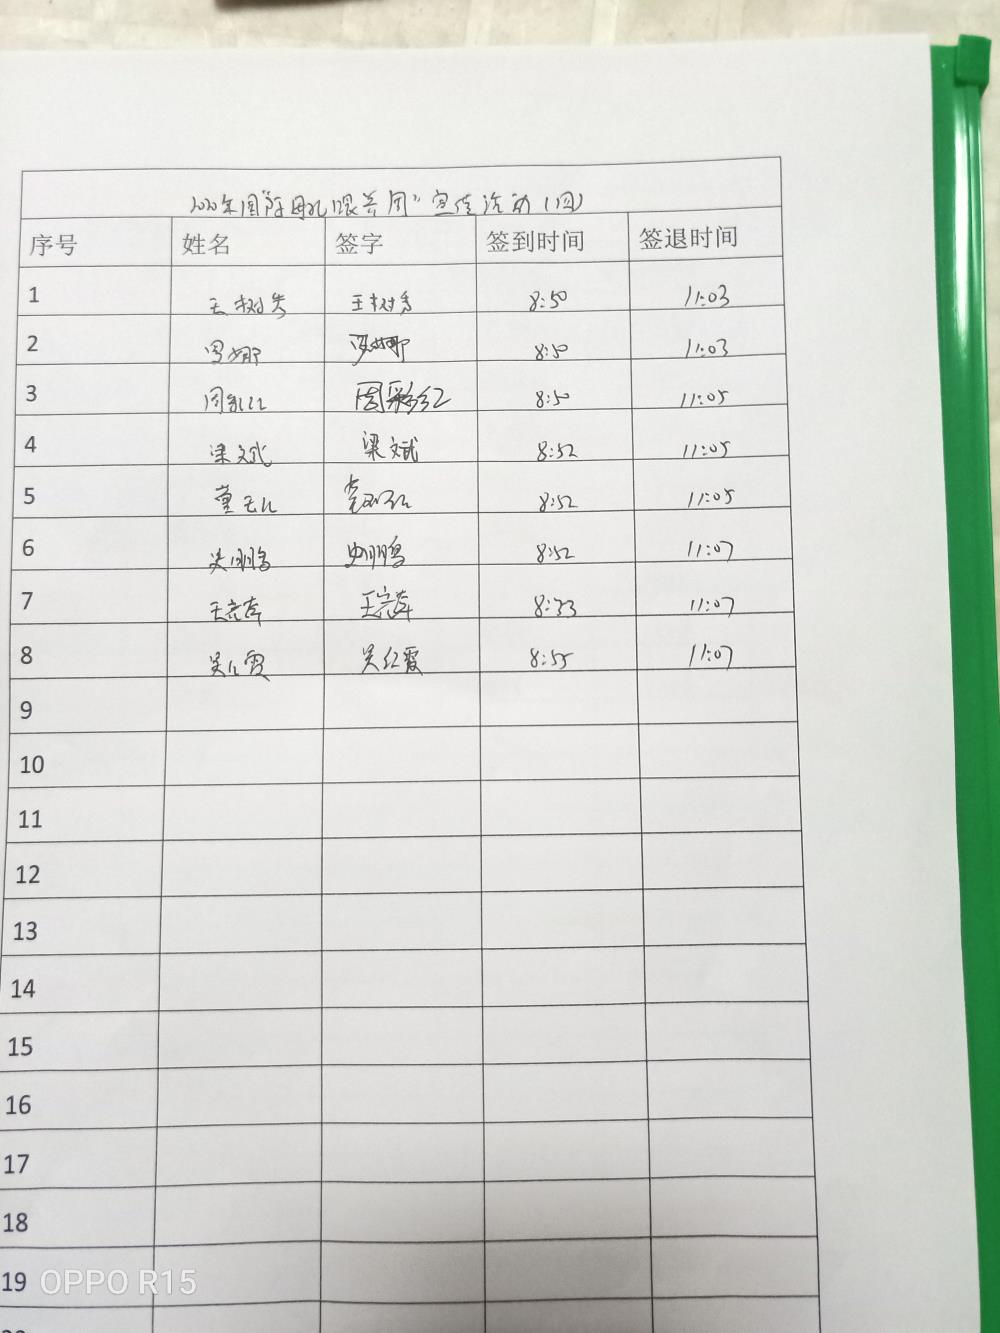 2020年国际母乳喂养周"宣传活动(四)
序号 姓名 签字 签到时间 签退时间
1 王树 王树 8:50 11:03
2 8:50 11:03
3 周彩红 周彩红 8:50 11:05
4 梁文斌 梁文斌 8:52 11:05
5 董 8:52 11:05
6 8:52 11:07
7 王 王 8:53 11:07
8 吴红霞 吴红霞 8:55 11:07
9
10
11
12
13
14
15
16
17
18
19 OPPO R15